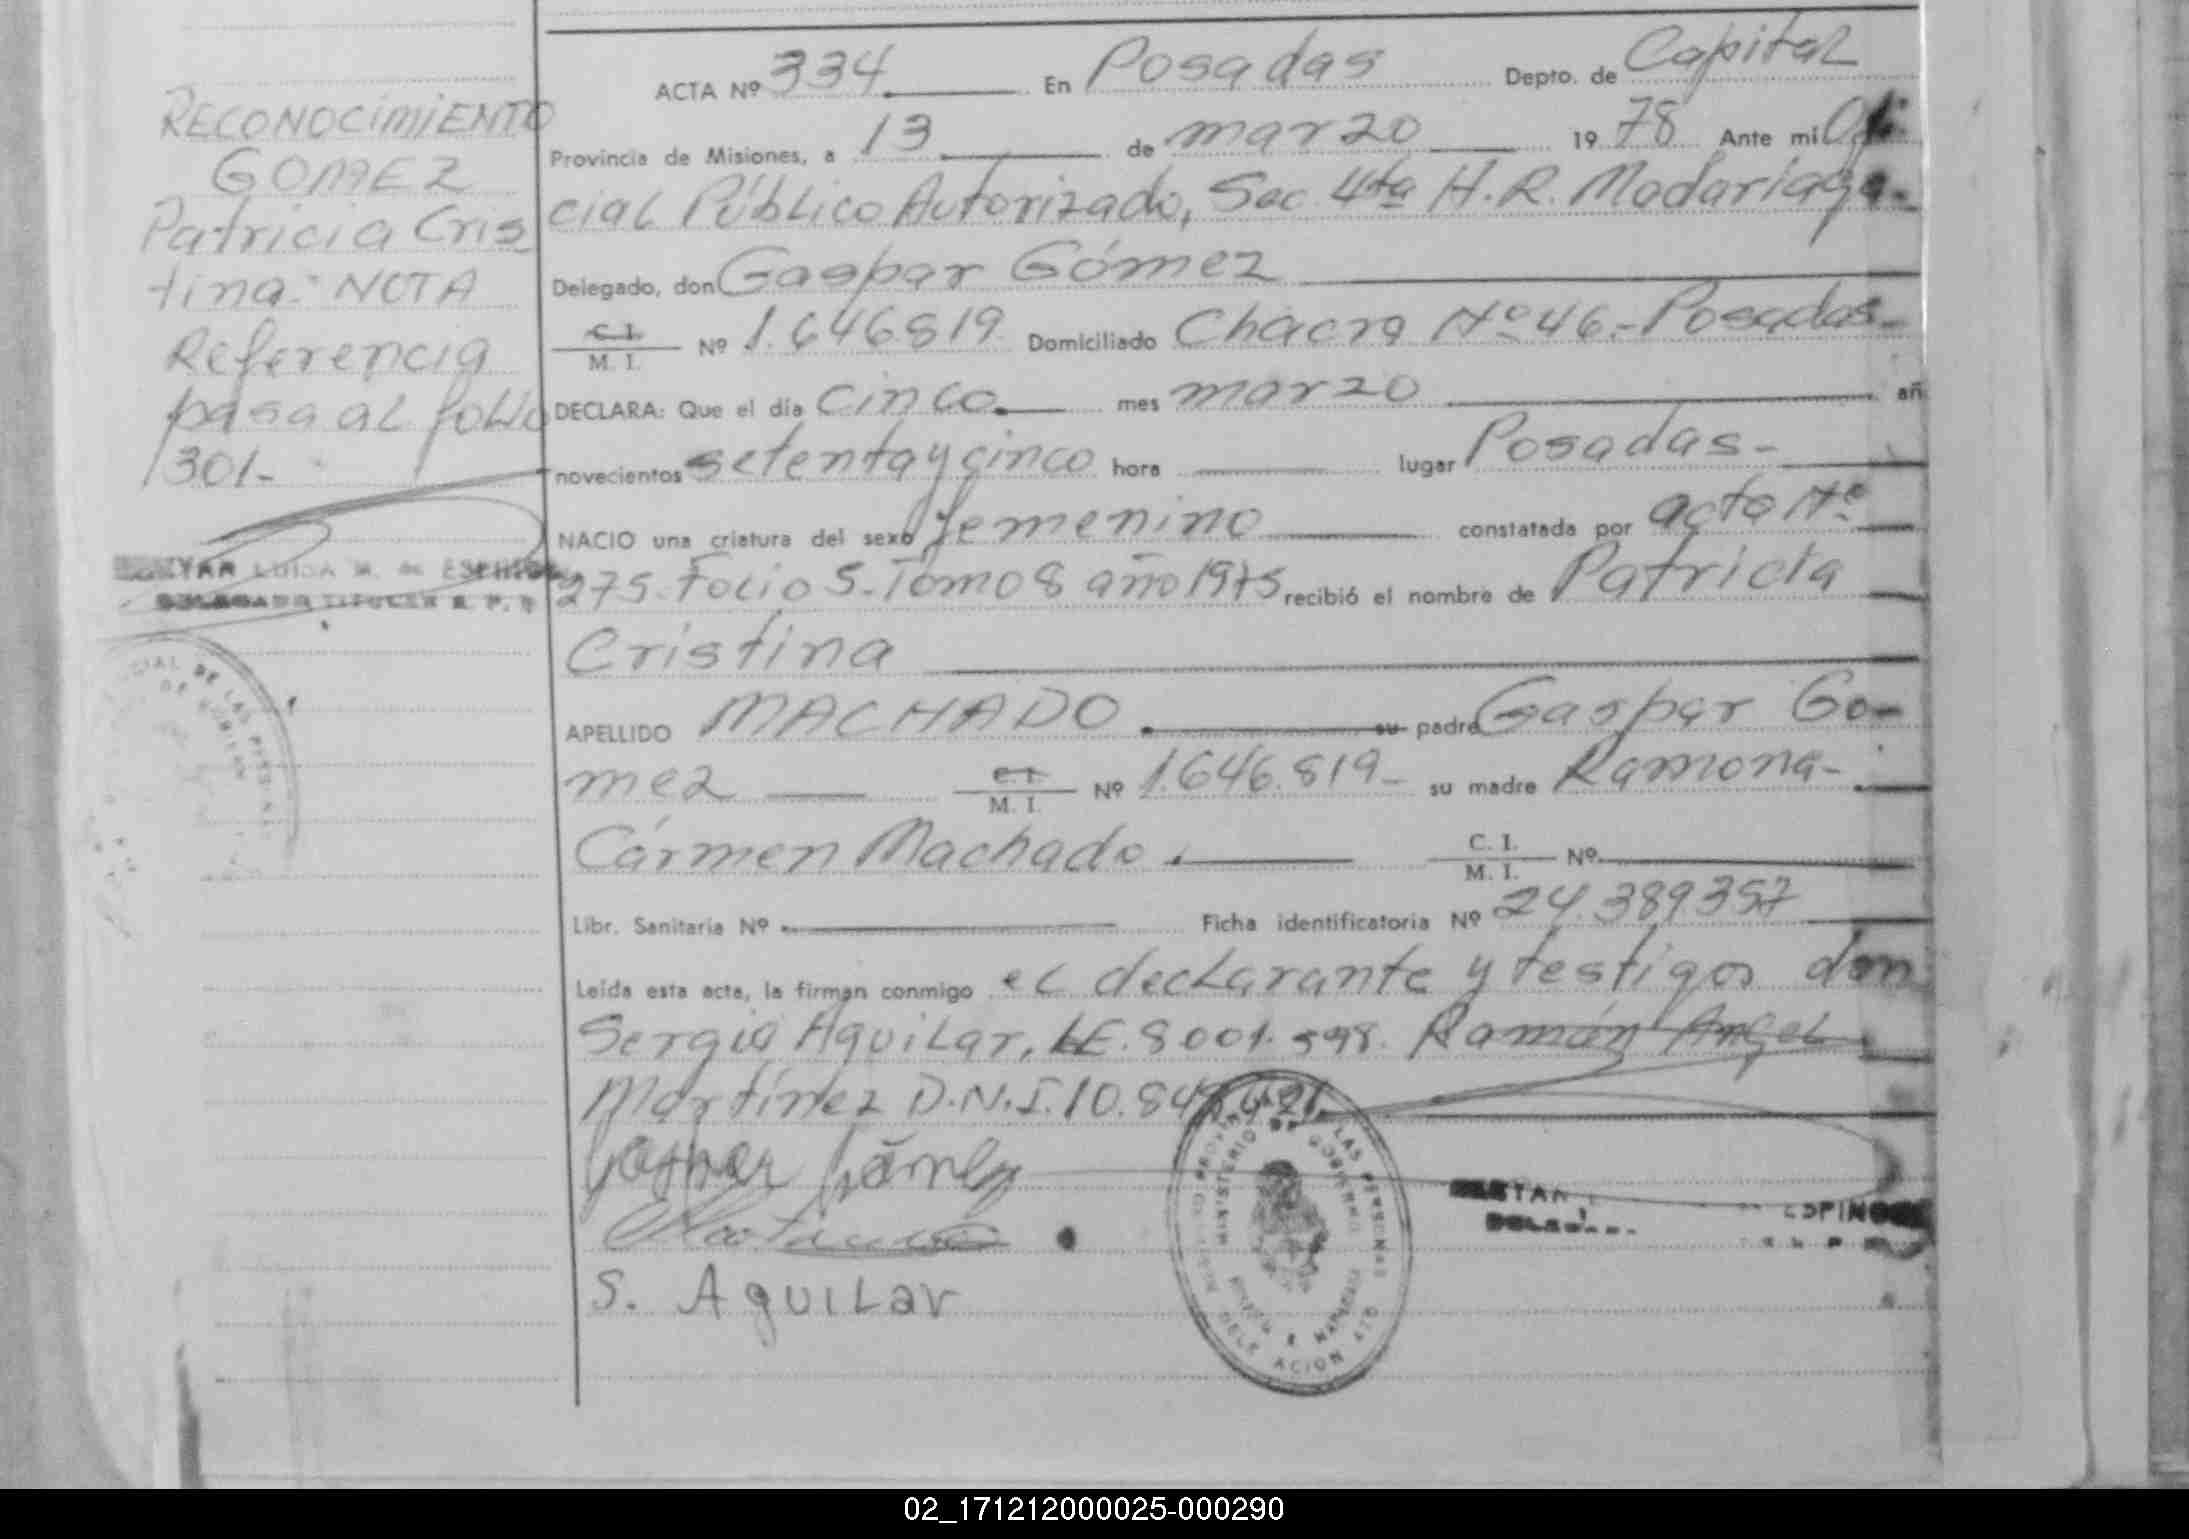 RECONOCIMIENTO
GOMEZ
Patricia Cris
tina.- NOTA
Referencia
pasa al folio
301-
ESPIN
DELEGADO TITULAR R. P.
CIAL DE LAS PERSONAS
ACTA Nº 334 En Posadas Depto. de Capital
Provincia de Misiones, a 13 de marzo 1978 Ante mi Ofi
cial Público Autorizado, Sec 4ta H.R. Madariaga.-
Delegado, don Gaspar Gómez
C. I.
M. I. Nº 1.646819 Domiciliado Chacra Nº 46.- Posadas-
DECLARA: Que el día cinco. mes marzo añ
novecientos setenta y cinco hora lugar Posadas-
NACIO una criatura del sexo femenino constatada por acta Nº
275. Folio 5. Tomo 8 año 1975 recibió el nombre de Patricia
Cristina
APELLIDO MACHADO. su padre Gaspar Go-
mez C.I. M. I. Nº 1.646.819- su madre Ramona-
Cármen Machado. C. I. M. I. Nº
Libr. Sanitaria Nº Ficha identificatoria Nº 24.389.357
Leída esta acta, la firman conmigo el declarante y testigos don
Sergio Aguilar, LE. 8001.598. Ramón Angel
Martínez D.N.I. 10.84
Gaspar Gómez
S. Aguilar
LAS PERSONAS
MINISTERIO DE GOBIERNO
DELEGACION
ESPINO
02_171212000025-000290